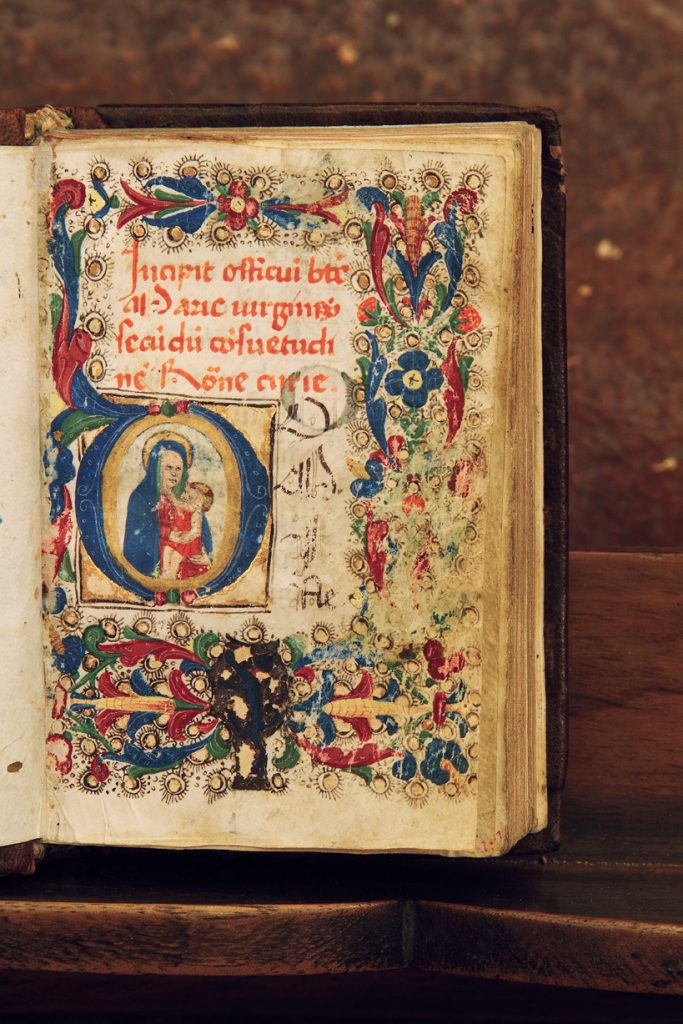 Incipit officiū btē
Marie uirginis
secūdū cōsuetudi
nē Rōne curie.
D O
M
I
Ne